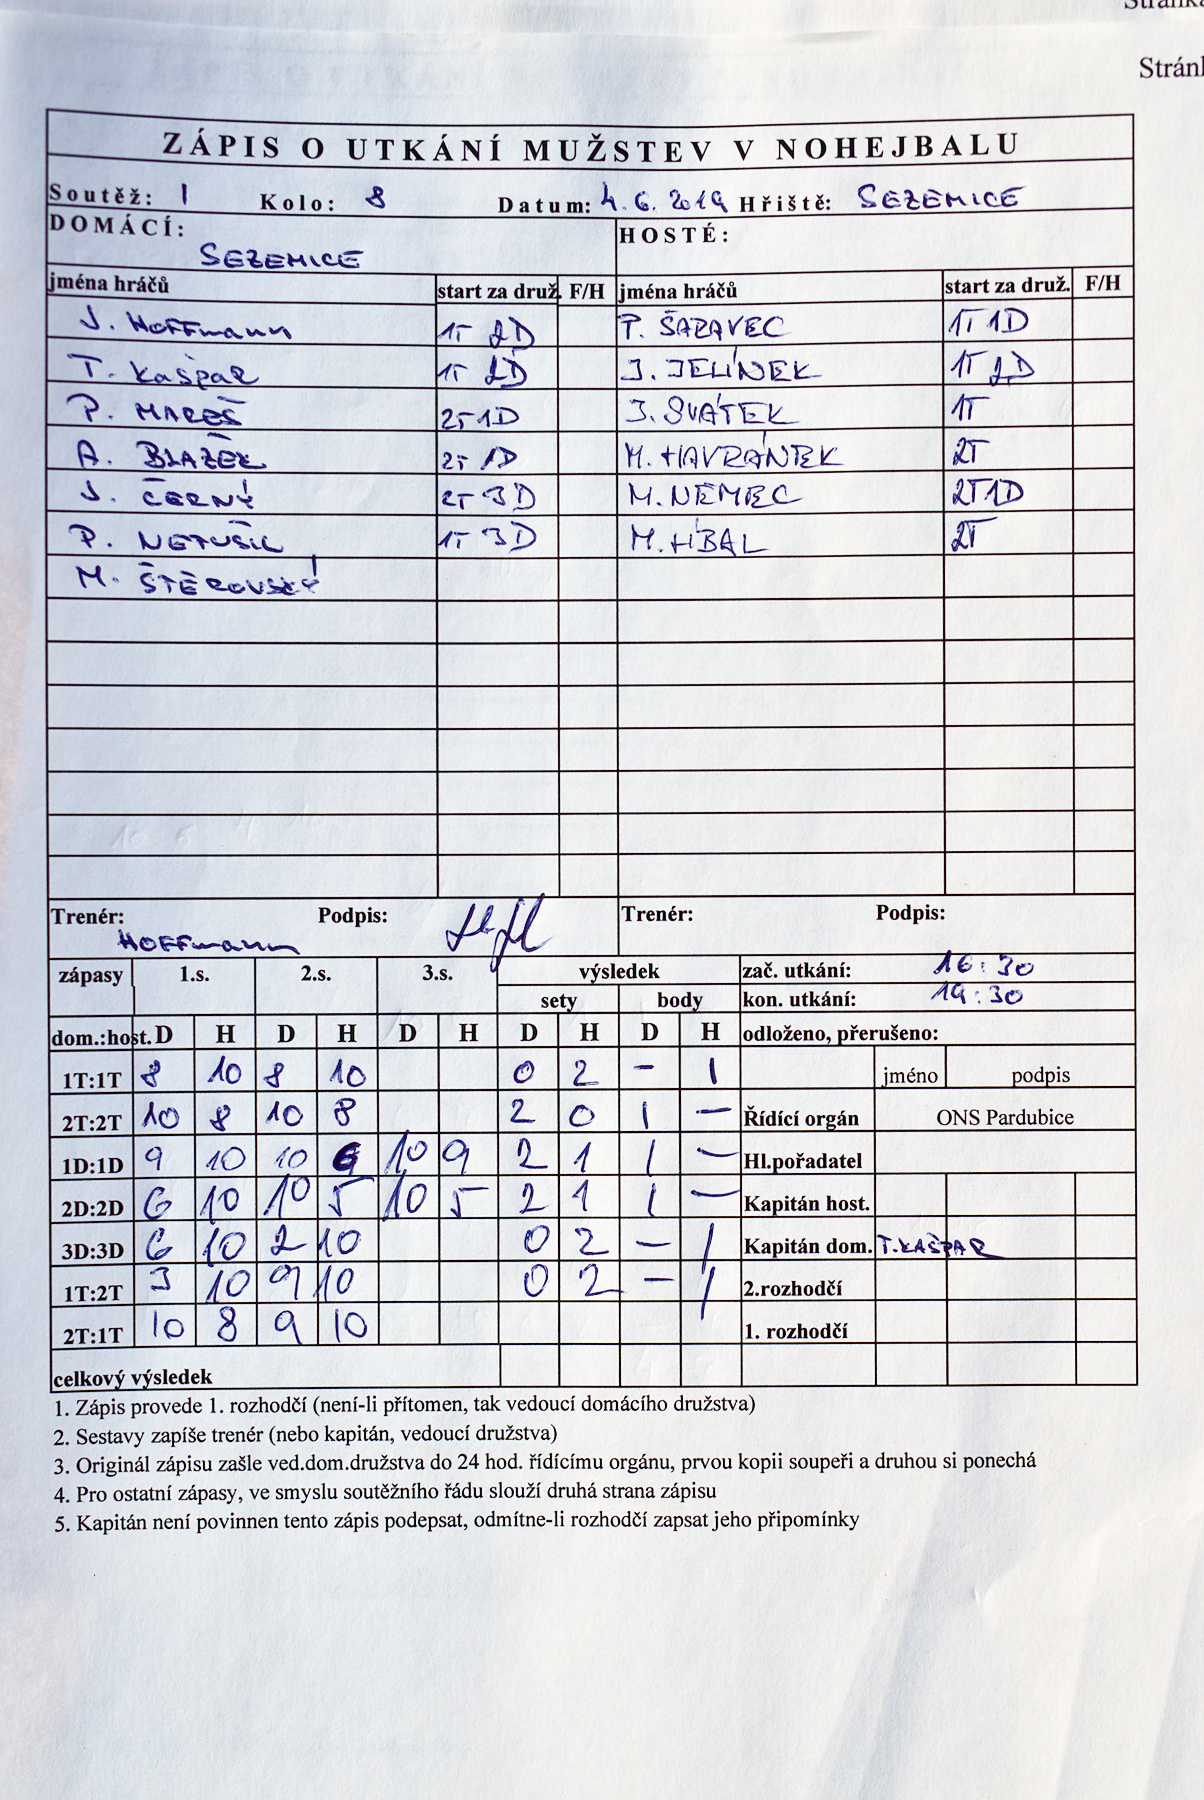 Stránka
Stránk
ZÁPIS O UTKÁNÍ MUŽSTEV V NOHEJBALU
Soutěž: 1 Kolo: 8 Datum: 4.6.2019 Hřiště: SEZEMICE
DOMÁCÍ: HOSTÉ:
SEZEMICE
jména hráčů start za druž. F/H jména hráčů start za druž. F/H
J. Hoffmann 1T 2D P. ŠARAVEC 1T 1D
T. Kašpar 1T 2D J. JELÍNEK 1T 2D
P. MAREŠ 2T 1D J. SVÁTEK 1T
A. BLAŽEK 2T 1D M. HAVRÁNEK 2T
J. ČERNÝ 2T 3D M. NĚMEC 2T 1D
P. NETUŠIL 1T 3D M. HÍBAL 2T
M. ŠTĚROVSKÝ
Trenér: Podpis: Trenér: Podpis:
HOFFmann
zápasy 1.s. 2.s. 3.s. výsledek zač. utkání: 16:30
sety body kon. utkání: 19:30
dom.:host. D H D H D H D H D H odloženo, přerušeno:
1T:1T 8 10 8 10 0 2 – 1 jméno podpis
2T:2T 10 8 10 8 2 0 1 – Řídící orgán ONS Pardubice
1D:1D 9 10 10 10 9 2 1 1 – Hl.pořadatel
2D:2D 6 10 10 5 10 5 2 1 1 – Kapitán host.
3D:3D 6 10 2 10 0 2 – 1 Kapitán dom. T.KAŠPAR
1T:2T 3 10 9 10 0 2 – 1 2.rozhodčí
2T:1T 10 8 9 10 1. rozhodčí
celkový výsledek
1. Zápis provede 1. rozhodčí (není-li přítomen, tak vedoucí domácího družstva)
2. Sestavy zapíše trenér (nebo kapitán, vedoucí družstva)
3. Originál zápisu zašle ved.dom.družstva do 24 hod. řídícímu orgánu, prvou kopii soupeři a druhou si ponechá
4. Pro ostatní zápasy, ve smyslu soutěžního řádu slouží druhá strana zápisu
5. Kapitán není povinnen tento zápis podepsat, odmítne-li rozhodčí zapsat jeho připomínky